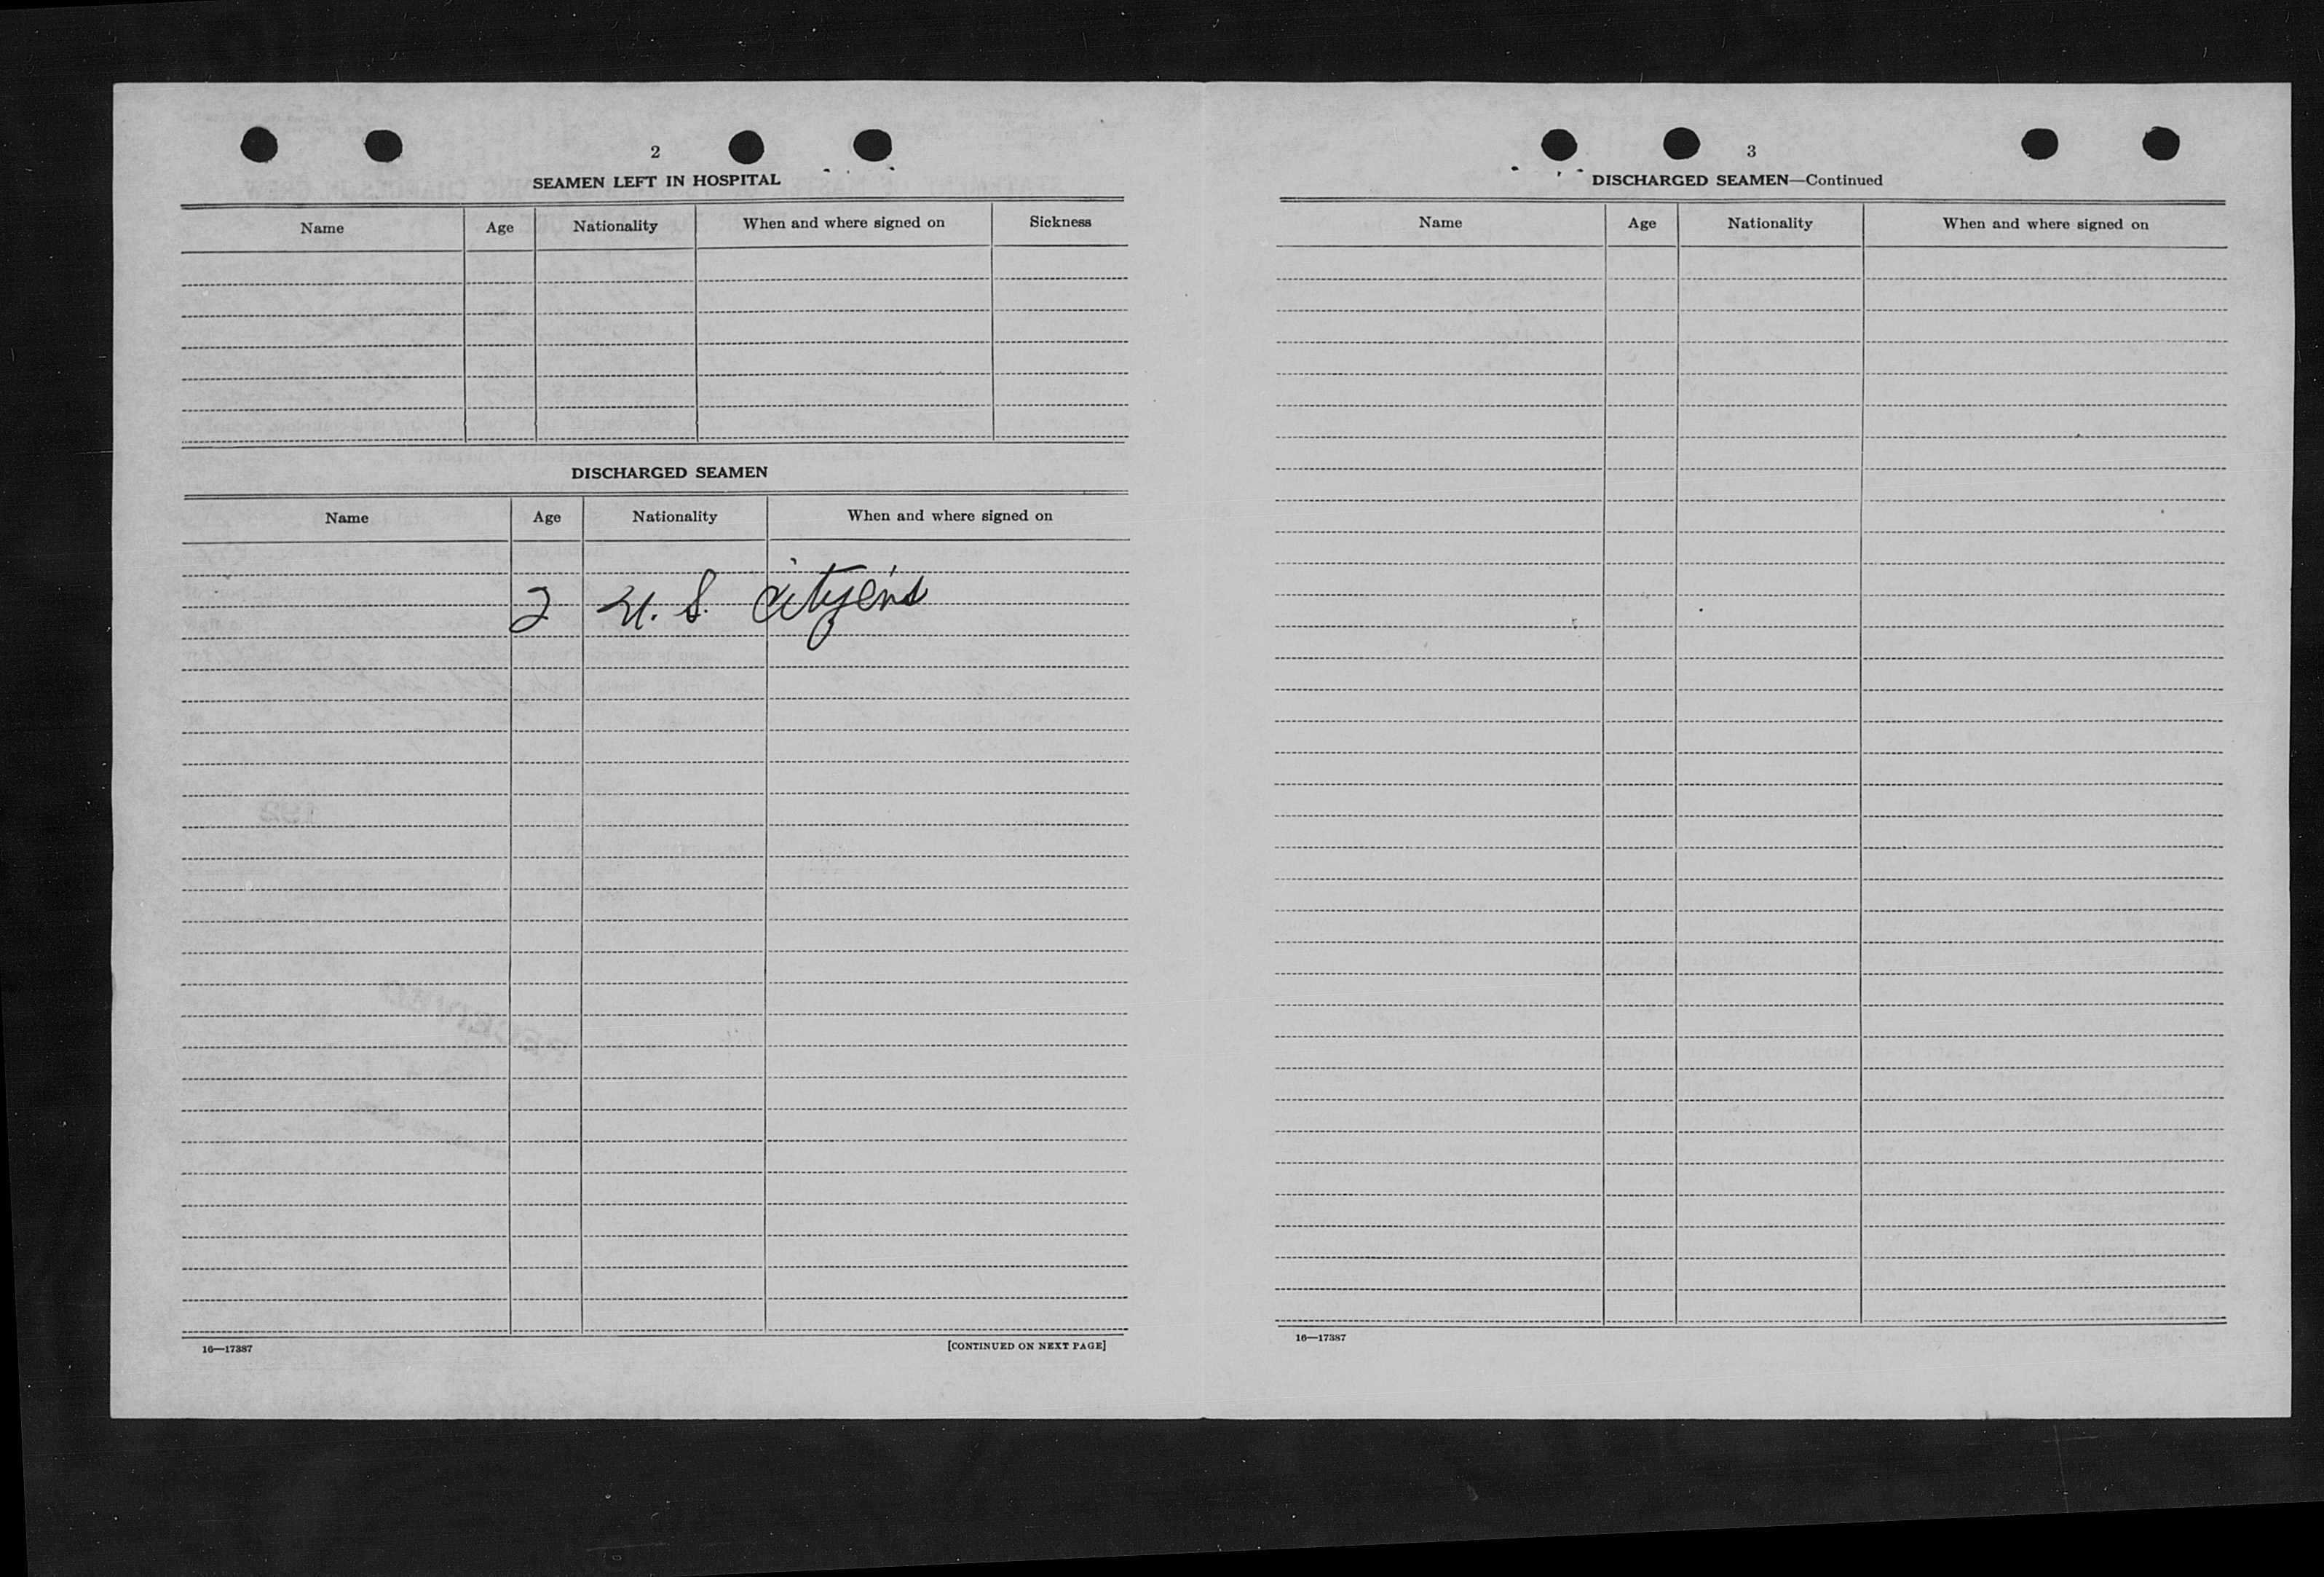 2
SEAMEN LEFT IN HOSPITAL
Name Age Nationality When and where signed on Sickness
DISCHARGED SEAMEN
Name Age Nationality When and where signed on
2 U. S. Citizens
16—17387 [CONTINUED ON NEXT PAGE]
3
DISCHARGED SEAMEN—Continued
Name Age Nationality When and where signed on
16—17387